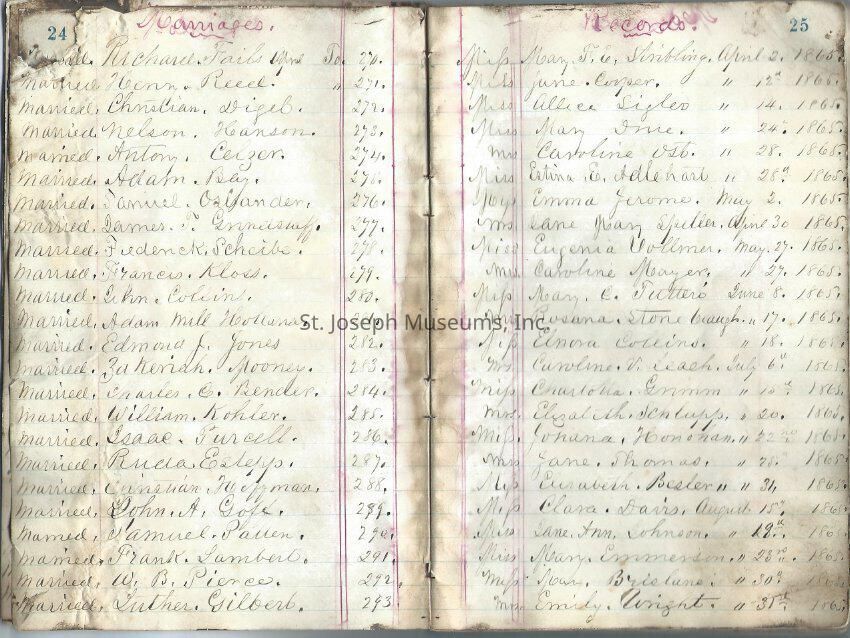 24 Marriages. Records. 25
Married. Richard Fails To. 270. Miss Mary F. E. Stribling. April 2. 1865
Married. Henry Reed. " 271. Miss Jane. Cooper. " 12th 1865.
Married. Christian. Digel. 272. Miss Allice Sigles " 14. 1865.
Married. Nelson. Hanson. 273. Miss Mary " 24. 1865.
Married. Antony. 274. Mrs Caroline Ost. " 28. 1865.
Married. Adam. Bay. 275. Miss Estina E. Adlehart " 28th 1865.
Married. Samuel. 276. Miss Emma Jerome. May 2. 1865.
Married. James. T. 277. Mrs. Jane Mary April 30 1865.
Married. Frederick. Scheibe. 278. Miss Eugenia Vollmer. May. 27. 1865.
Married. Francis. Kloss. 279. Mrs Caroline Mayer. " 27. 1865.
Married. John. Collins. 280. Miss Mary. C. June 8. 1865.
Married. Adam Will St. Joseph Museums, Inc. Rosana. Stone " 17. 1865.
Married. Edmond J. Jones 282. Miss Elnora Collins. " 18. 1865.
Married. Zakeriah. Mooney. 283. Mrs. Caroline. V. Leach. July 6th 1865.
Married. Charles. C. Bender. 284. Miss Charlotta. Grimm " 1865.
Married. William. Kohler. 285. Mrs. Elizabeth. Schlupp. " 20. 1865.
Married. Isaac. Purcell. 286. Miss Johana. Honohan. " 22nd 1865.
Married. Ruda. Estepp. 287. Miss Jane. Thomas. " 1865.
Married. Christian 288. Miss Elizabeth. Besler " 31, 1865.
Married. John. A. Goff. 289. Miss Clara. Davis. August 15th 1865
Married. Samuel. Patten. 290. Miss Jane. Ann. Johnson. " 19th 1865
Married. Frank. Lambert. 291. Miss Mary. Emmerson. " 23rd 1865.
Married. W. B. Pierce. 292. Miss Mary. " 30th 1865
Married. Luther. Gilbert. 293. Mrs Emily. Wright. " 31st 1865.